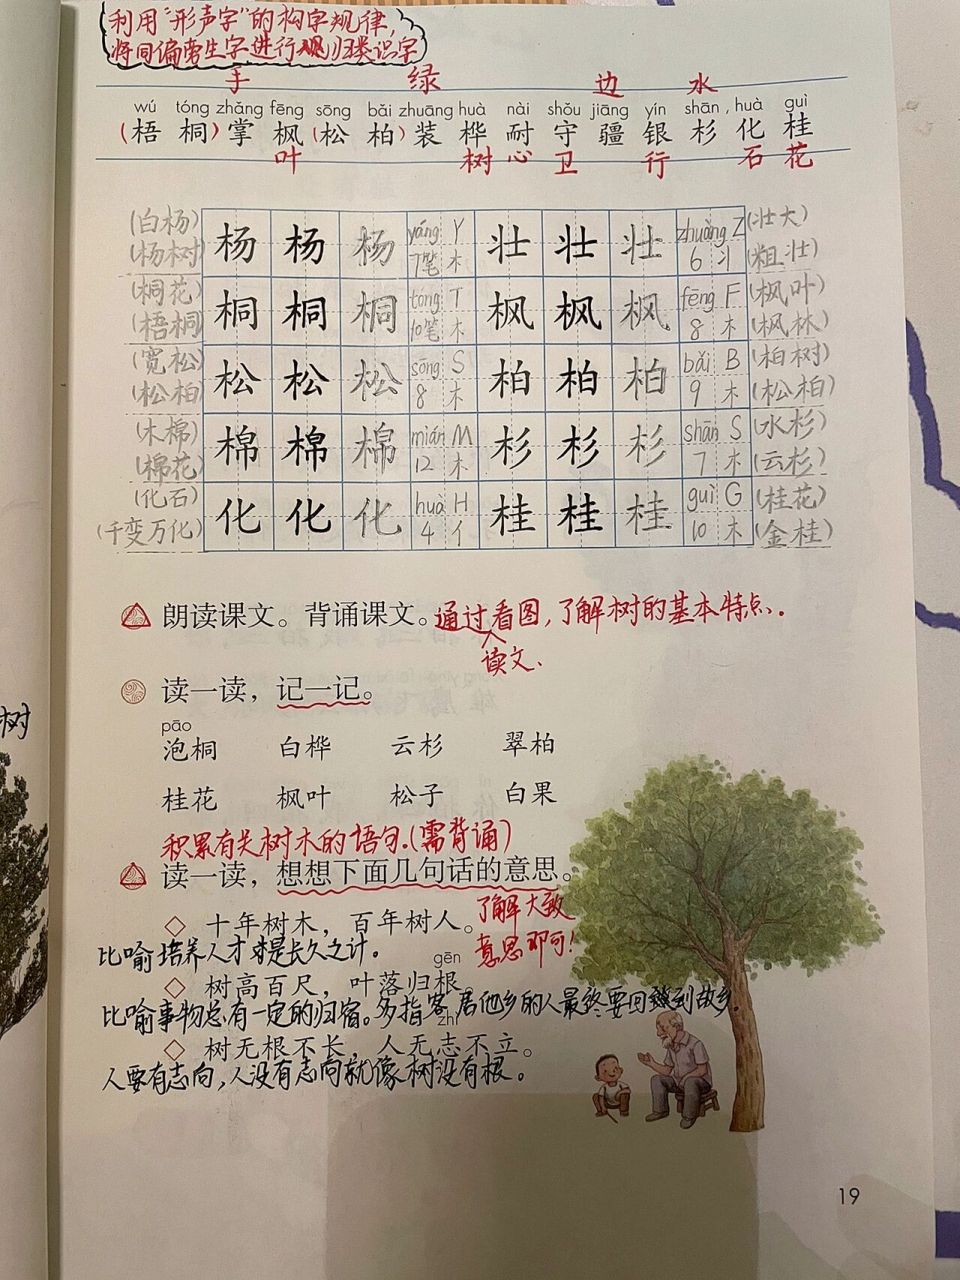 利用“形声字”的构字规律,
将同偏旁生字进行归类识字
手 绿 边 水
wú tóng zhǎng fēng sōng bǎi zhuāng huà nài shǒu jiāng yín shān huà guì
(梧 桐) 掌 枫 (松 柏) 装 桦 耐 守 疆 银 杉 化 桂
叶 树 心 卫 行 石 花
(白杨) 杨 杨 杨 yáng Y 壮 壮 壮 zhuàng Z (壮大)
(杨树) 7笔 木 6 丬 (粗壮)
(桐花) 桐 桐 桐 tóng T 枫 枫 枫 fēng F (枫叶)
(梧桐) 10笔 木 8 木 (枫林)
(宽松) 松 松 松 sōng S 柏 柏 柏 bǎi B (柏树)
(松柏) 8 木 9 木 (松柏)
(木棉) 棉 棉 棉 mián M 杉 杉 杉 shān S (水杉)
(棉花) 12 木 7 木 (云杉)
(化石) 化 化 化 huà H 桂 桂 桂 guì G (桂花)
(千变万化) 4 亻 10 木 (金桂)
朗读课文。背诵课文。通过看图,了解树的基本特点.
读文、
读一读，记一记。
pāo
泡桐 白桦 云杉 翠柏
桂花 枫叶 松子 白果
积累有关树木的语句.(需背诵)
读一读，想想下面几句话的意思。
十年树木，百年树人。了解大致
比喻培养人才是长久之计。 意思即可!
gēn
树高百尺，叶落归根。
比喻事物总有一定的归宿。多指客居他乡的人最终要回到故乡.
zhì
树无根不长，人无志不立。
人要有志向,人没有志向就像树没有根。
19
树